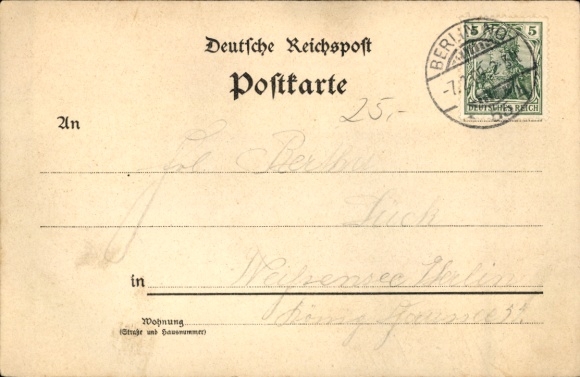 Deutsche Reichspost
Postkarte
BERLIN NO
5 5
DEUTSCHES REICH
25,-
An
Frl. Bertha
in Weißensee Berlin
Wohnung
(Straße und Hausnummer)
König Chaussee